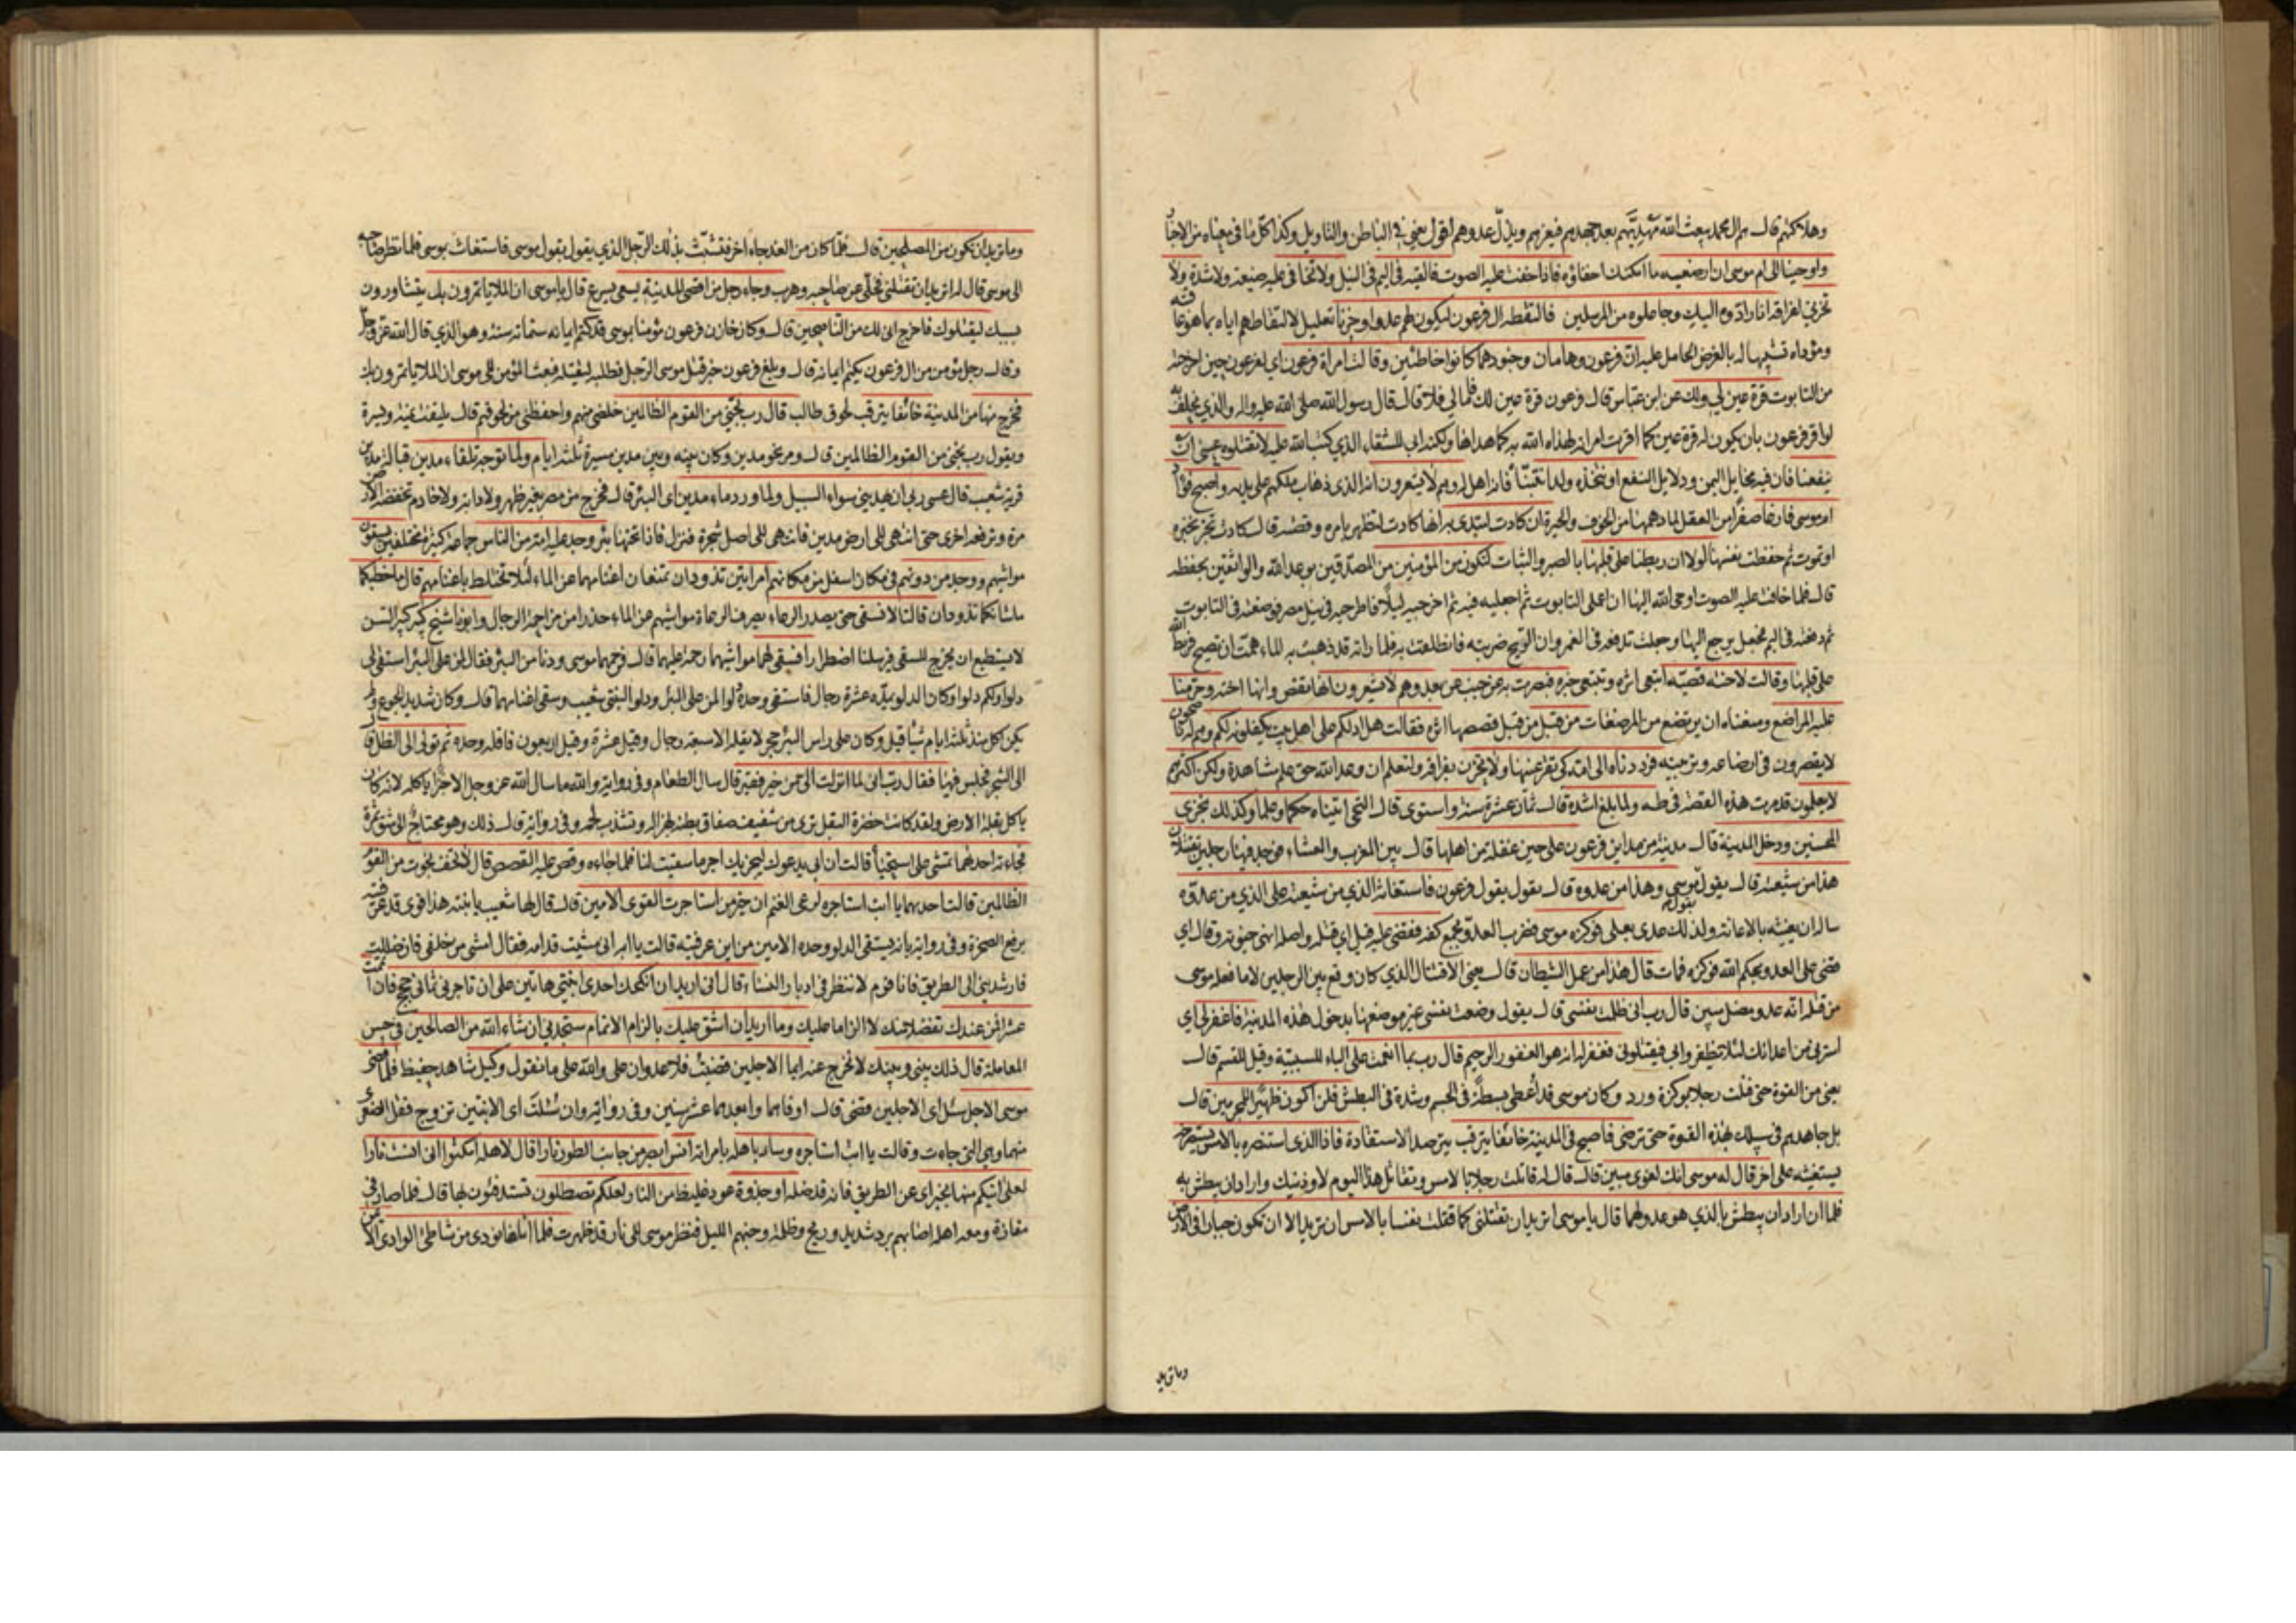 وهلاكهم قال هم ال محمد يبعث الله مهديهم بعد جهدهم فيعزهم ويذل عدوهم اقول يعني في الباطن والتاويل وكذا كل ما في معناه من الاخبار
واوحينا الى ام موسى ان ارضعيه ما امكنك اخفاؤه فاذا خفت عليه الصوت فالقيه في اليم في النيل ولا تخافي عليه ضيعة ولا شدة ولا
تحزني لفراقه انا رادوه اليك وجاعلوه من المرسلين فالتقطه ال فرعون ليكون لهم عدوا وحزنا تعليل لالتقاطهم اياه بما هو عاقبته
ومؤداه تشبيها له بالغرض الحامل عليه ان فرعون وهامان وجنودهما كانوا خاطئين وقالت امراة فرعون اي لفرعون حين اخرجته
من التابوت قرة عين لي ولك عن ابن عباس قال فرعون قرة عين لك فاما لي فلا قال قال رسول الله صلى الله عليه واله والذي يحلف به
لو اقر فرعون بان يكون له قرة عين كما اقرت امراته لهداه الله به كما هداها ولكنه ابى للشقاء الذي كتب الله عليه لا تقتلوه عسى ان
ينفعنا فان فيه مخايل اليمن ودلايل النفع او نتخذه ولدا نتبناه فانه اهل له وهم لا يشعرون انه الذي ذهاب ملكهم على يديه واصبح فؤاد
ام موسى فارغا صفرا من العقل لما دهمها من الخوف والحيرة ان كادت لتبدي به انها كادت لتظهر بامره وقصته قال كادت تخبر بخبره
او تموت ثم حفظت نفسها لولا ان ربطنا على قلبها بالصبر والثبات لتكون من المؤمنين من المصدقين بوعد الله والواثقين بحفظه
قال فلما خافت عليه الصوت اوحى الله اليها ان اعملي التابوت ثم اجعليه فيه ثم اخرجيه ليلا فاطرحيه في نيل مصر فوضعته في التابوت
ثم دفعته في اليم فجعل يرجع اليها وجعلت تدفعه في الغمر وان الريح ضربته فانطلقت به فلما راته قد ذهبت به الماء همت ان تصيح فربط الله
على قلبها وقالت لاخته قصيه اتبعي اثره وتتبعي خبره فبصرت به عن جنب عن بعد وهم لا يشعرون انها تقص وانها اخته وحرمنا
عليه المراضع ومنعناه ان يرتضع من المرضعات من قبل من قبل قصصها اثره فقالت هل ادلكم على اهل بيت يكفلونه لكم وهم له ناصحون
لا يقصرون في ارضاعه وتربيته فرددناه الى امه كي تقر عينها ولا تحزن بفراقه ولتعلم ان وعد الله حق علم مشاهدة ولكن اكثرهم
لا يعلمون قد مرت هذه القصة في طه ولما بلغ اشده قال ثمان عشرة سنة واستوى قال التحى اتيناه حكما وعلما وكذلك نجزي
المحسنين ودخل المدينة قال مدينة من مداين فرعون على حين غفلة من اهلها قال بين المغرب والعشاء فوجد فيها رجلين يقتتلان
هذا من شيعته قال يقول بقول موسى وهذا من عدوه قال يقول بقول فرعون فاستغاثه الذي من شيعته على الذي من عدوه
ساله ان يغيثه بالاعانة ولذلك عدى بعلى فوكزه موسى فضرب العدو بجمع كفه فقضى عليه قيل اي قتله واصله انهى حيوته وقال اي
قضى على العدو بحكم الله فوكزه فمات قال هذا من عمل الشيطان قال يعني الاقتتال الذي كان وقع بين الرجلين لا ما فعله موسى
من قتله انه عدو مضل مبين قال رب اني ظلمت نفسي قال يقول وضعت نفسي غير موضعها بدخول هذه المدينة فاغفر لي اي
استرني من اعدائك لئلا يظفروا بي فيقتلوني فغفر له انه هو الغفور الرحيم قال رب بما انعمت علي الباء للسببية وقيل للقسم قال
يعني من القوة حتى قتلت رجلا بوكزة ورد وكان موسى قد اعطي بسطة في الجسم وشدة في البطش فلن اكون ظهيرا للمجرمين قال
بل جاهدهم في سبيلك بهذه القوة حتى ترضى فاصبح في المدينة خائفا يترقب يترصد الاستقادة فاذا الذي استنصره بالامس يستصرخه
يستغيثه على اخر قال له موسى انك لغوي مبين قال قال له قاتلت رجلا بالامس وتقاتل هذا اليوم لاوذينك واراد ان يبطش به
فلما ان اراد ان يبطش بالذي هو عدو لهما قال يا موسى اتريد ان تقتلني كما قتلت نفسا بالامس ان تريد الا ان تكون جبارا في الارض
وما تريد
وما تريد ان تكون من المصلحين قال فلما كان من الغد جاء اخر فتشبث بذلك الرجل الذي يقول بقول موسى فاستغاث بموسى فلما نظر صاحبه
الى موسى قال له اتريد ان تقتلني فخلى عن صاحبه وهرب وجاء رجل من اقصى المدينة يسعى يسرع قال يا موسى ان الملا ياتمرون بك يتشاورون
بسببك ليقتلوك فاخرج اني لك من الناصحين قال وكان خازن فرعون مؤمنا بموسى قد كتم ايمانه ستمائة سنة وهو الذي قال الله عز وجل
وقال رجل مؤمن من ال فرعون يكتم ايمانه قال وبلغ فرعون خبر قتل موسى الرجل فطلبه ليقتله فبعث المؤمن الى موسى ان الملا ياتمرون بك
فخرج منها من المدينة خائفا يترقب لحوق طالب قال رب نجني من القوم الظالمين خلصني منهم واحفظني من لحوقهم قال يلتفت يمنة ويسرة
ويقول رب نجني من القوم الظالمين قال ومر نحو مدين وكان بينه وبين مدين مسيرة ثلثة ايام ولما توجه تلقاء مدين قبالة مدين
قرية شعيب قال عسى ربي ان يهديني سواء السبيل ولما ورد ماء مدين اي البئر قال فخرج من مصر بغير ظهر ولا دابة ولا خادم تخفضه الارض
مرة وترفعه اخرى حتى انتهى الى ارض مدين فانتهى الى اصل شجرة فنزل فاذا تحتها بئر وجد عليه امة من الناس جماعة كثيرة مختلفين يسقون
مواشيهم ووجد من دونهم في مكان اسفل من مكانهم امراتين تذودان تمنعان اغنامهما عن الماء لئلا تختلط باغنامهم قال ما خطبكما
ما شانكما تذودان قالتا لا نسقي حتى يصدر الرعاء يصرف الرعاة مواشيهم عن الماء حذرا من مزاحمة الرجال وابونا شيخ كبير كبير السن
لا يستطيع ان يخرج للسقي فيرسلنا اضطرارا فسقى لهما مواشيهما رحمة عليهما قال فرحمهما موسى ودنا من البئر فقال لمن على البئر استقي لي
دلوا ولكم دلوا وكان الدلو يمده عشرة رجال فاستقى وحده دلوا لمن على البئر ودلوا لبنتي شعيب وسقى اغنامهما قال وكان شديد الجوع ولم
يكن اكل منذ ثلثة ايام شيئا قيل وكان على راس البئر حجر لا يقله الا سبعة رجال وقيل عشرة وقيل اربعون فاقله وحده ثم تولى الى الظل قال
الى الشجرة فجلس فيها فقال رب اني لما انزلت الي من خير فقير قال سال الطعام وفي رواية والله ما سال الله عز وجل الا خبزا ياكله لانه كان
ياكل بقلة الارض ولقد كانت خضرة البقل ترى من شفيف صفاق بطنه لهزاله وتشذب لحمه وفي رواية قال ذلك وهو محتاج الى شق تمرة
فجاءته احدهما تمشي على استحياء قالت ان ابي يدعوك ليجزيك اجر ما سقيت لنا فلما جاءه وقص عليه القصص قال لا تخف نجوت من القوم
الظالمين قالت احديهما يا ابت استاجره لرعي الغنم ان خير من استاجرت القوي الامين قال قال لها شعيب يا بنية هذا قوي قد عرفته
برفع الصخرة وفي رواية بانه يستقي الدلو وحده الامين من اين عرفتيه قالت يا ابه اني مشيت قدامه فقال امشي من خلفي فان ضللت
فارشديني الى الطريق فانا قوم لا ننظر في ادبار النساء قال اني اريد ان انكحك احدى ابنتي هاتين على ان تاجرني ثماني حجج فان اتممت
عشرا فمن عندك تفضلا منك لا الزاما عليك وما اريد ان اشق عليك بالزام الاتمام ستجدني ان شاء الله من الصالحين في حسن
المعاملة قال ذلك بيني وبينك لا نخرج عنه ايما الاجلين قضيت فلا عدوان علي والله على ما نقول وكيل شاهد حفيظ فلما قضى
موسى الاجل سئل اي الاجلين قضى قال اوفاهما وابعدهما عشر سنين وفي رواية وان سئلت اي الابنتين تزوج فقل الصغرى
منهما وهي التي جاءت وقالت يا ابت استاجره وسار باهله بامراته انس ابصر من جانب الطور نارا قال لاهله امكثوا اني انست نارا
لعلي اتيكم منها بخبر اي عن الطريق فانه قد ضله او جذوة عود غليظ من النار لعلكم تصطلون تستدفئون بها قال فلما صار في
مفازة ومعه اهله اصابهم برد شديد وريح وظلمة وجنهم الليل فنظر موسى الى نار قد ظهرت فلما اتاها نودي من شاطئ الوادي الايمن